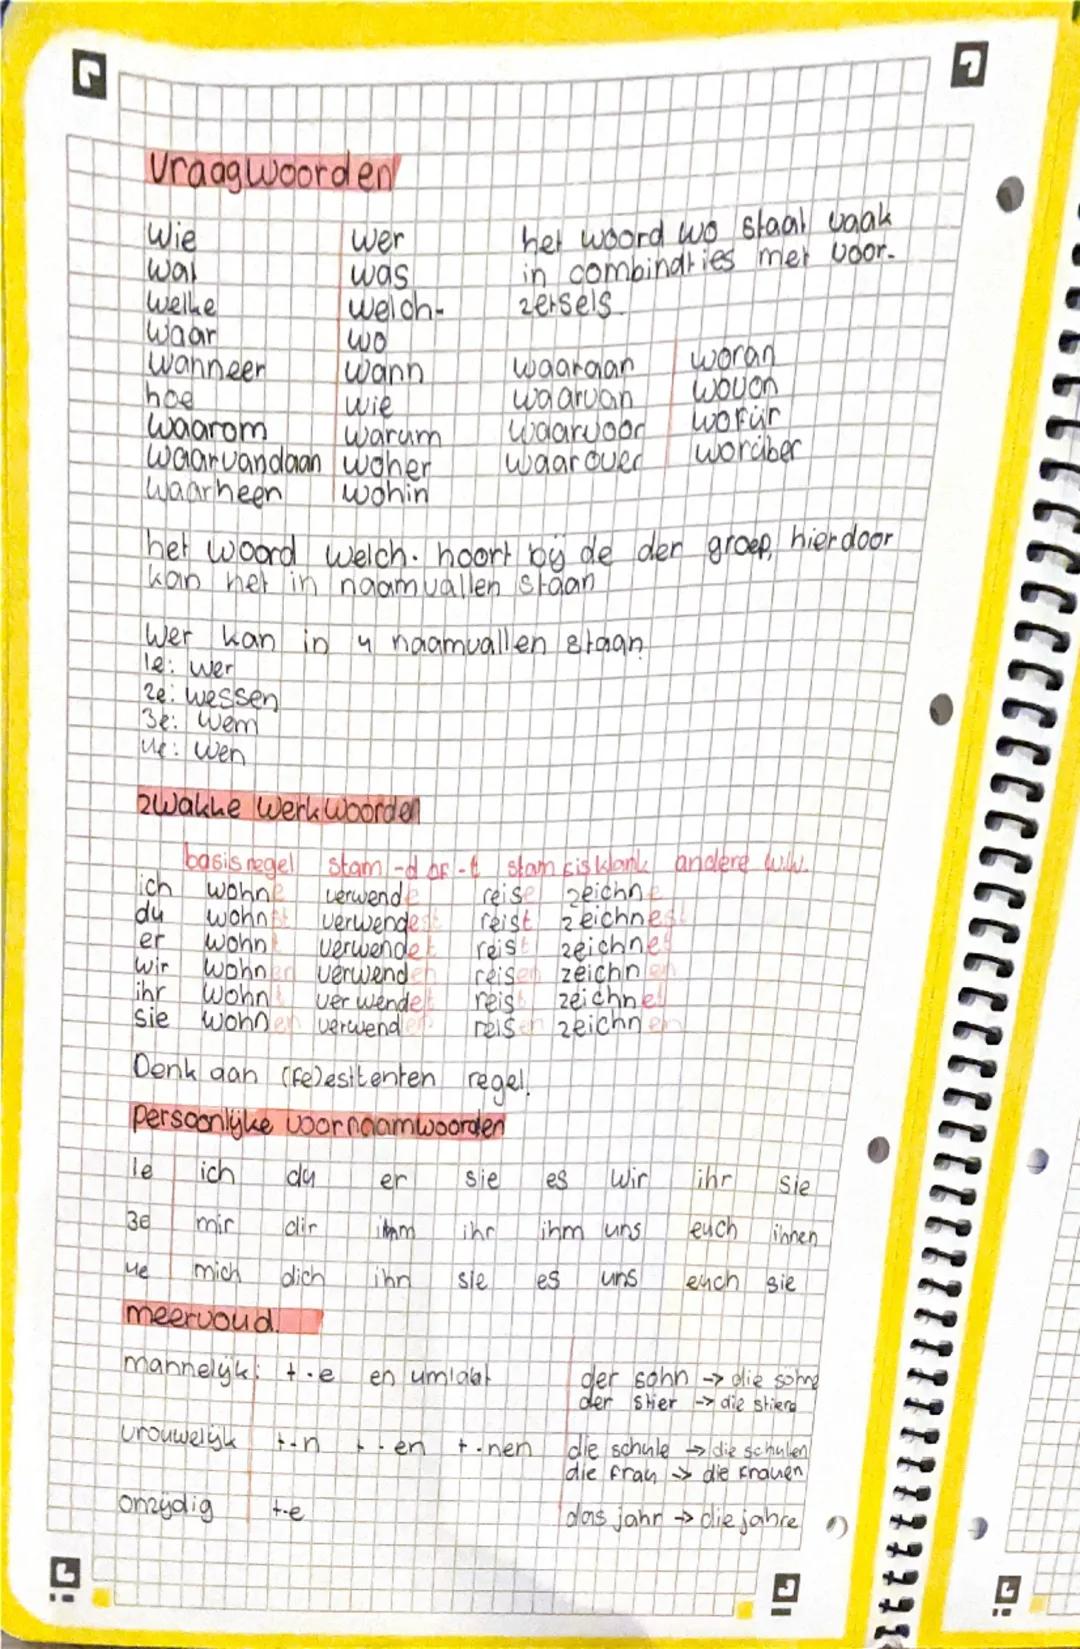 vraagwoorden
wie wer het woord wo staat vaak
wat was in combinaties met voor-
welke welch- zetsels.
waar wo
wanneer wann waaraan woran
hoe wie waarvan wovon
waarom warum waarvoor wofür
waarvandaan woher waarover worüber
waarheen wohin
het woord welch. hoort bij de der groep, hierdoor
kan het in naamvallen staan
wer kan in 4 naamvallen staan.
1e: wer
2e: wessen
3e: wem
4e: wen
zwakke werkwoorden
basisregel stam -d of -t stam sisklank andere w.w.
ich wohne verwende reise zeichne
du wohnst verwendest reist zeichnest
er wohnt verwendet reist zeichnet
wir wohnen verwenden reisen zeichnen
ihr wohnt verwendet reist zeichnet
sie wohnen verwenden reisen zeichnen
Denk aan (Fe)esttenten regel.
persoonlijke voornaamwoorden
1e ich du er sie es wir ihr sie
3e mir dir ihm ihr ihm uns euch ihnen
4e mich dich ihn sie es uns euch sie
meervoud.
mannelijk: +-e en umlaut der sohn -> die söhne
der stier -> die stiere
vrouwelijk +-n +-en +-nen die schule -> die schulen
die frau -> die frauen
onzijdig +-e das jahr -> die jahre